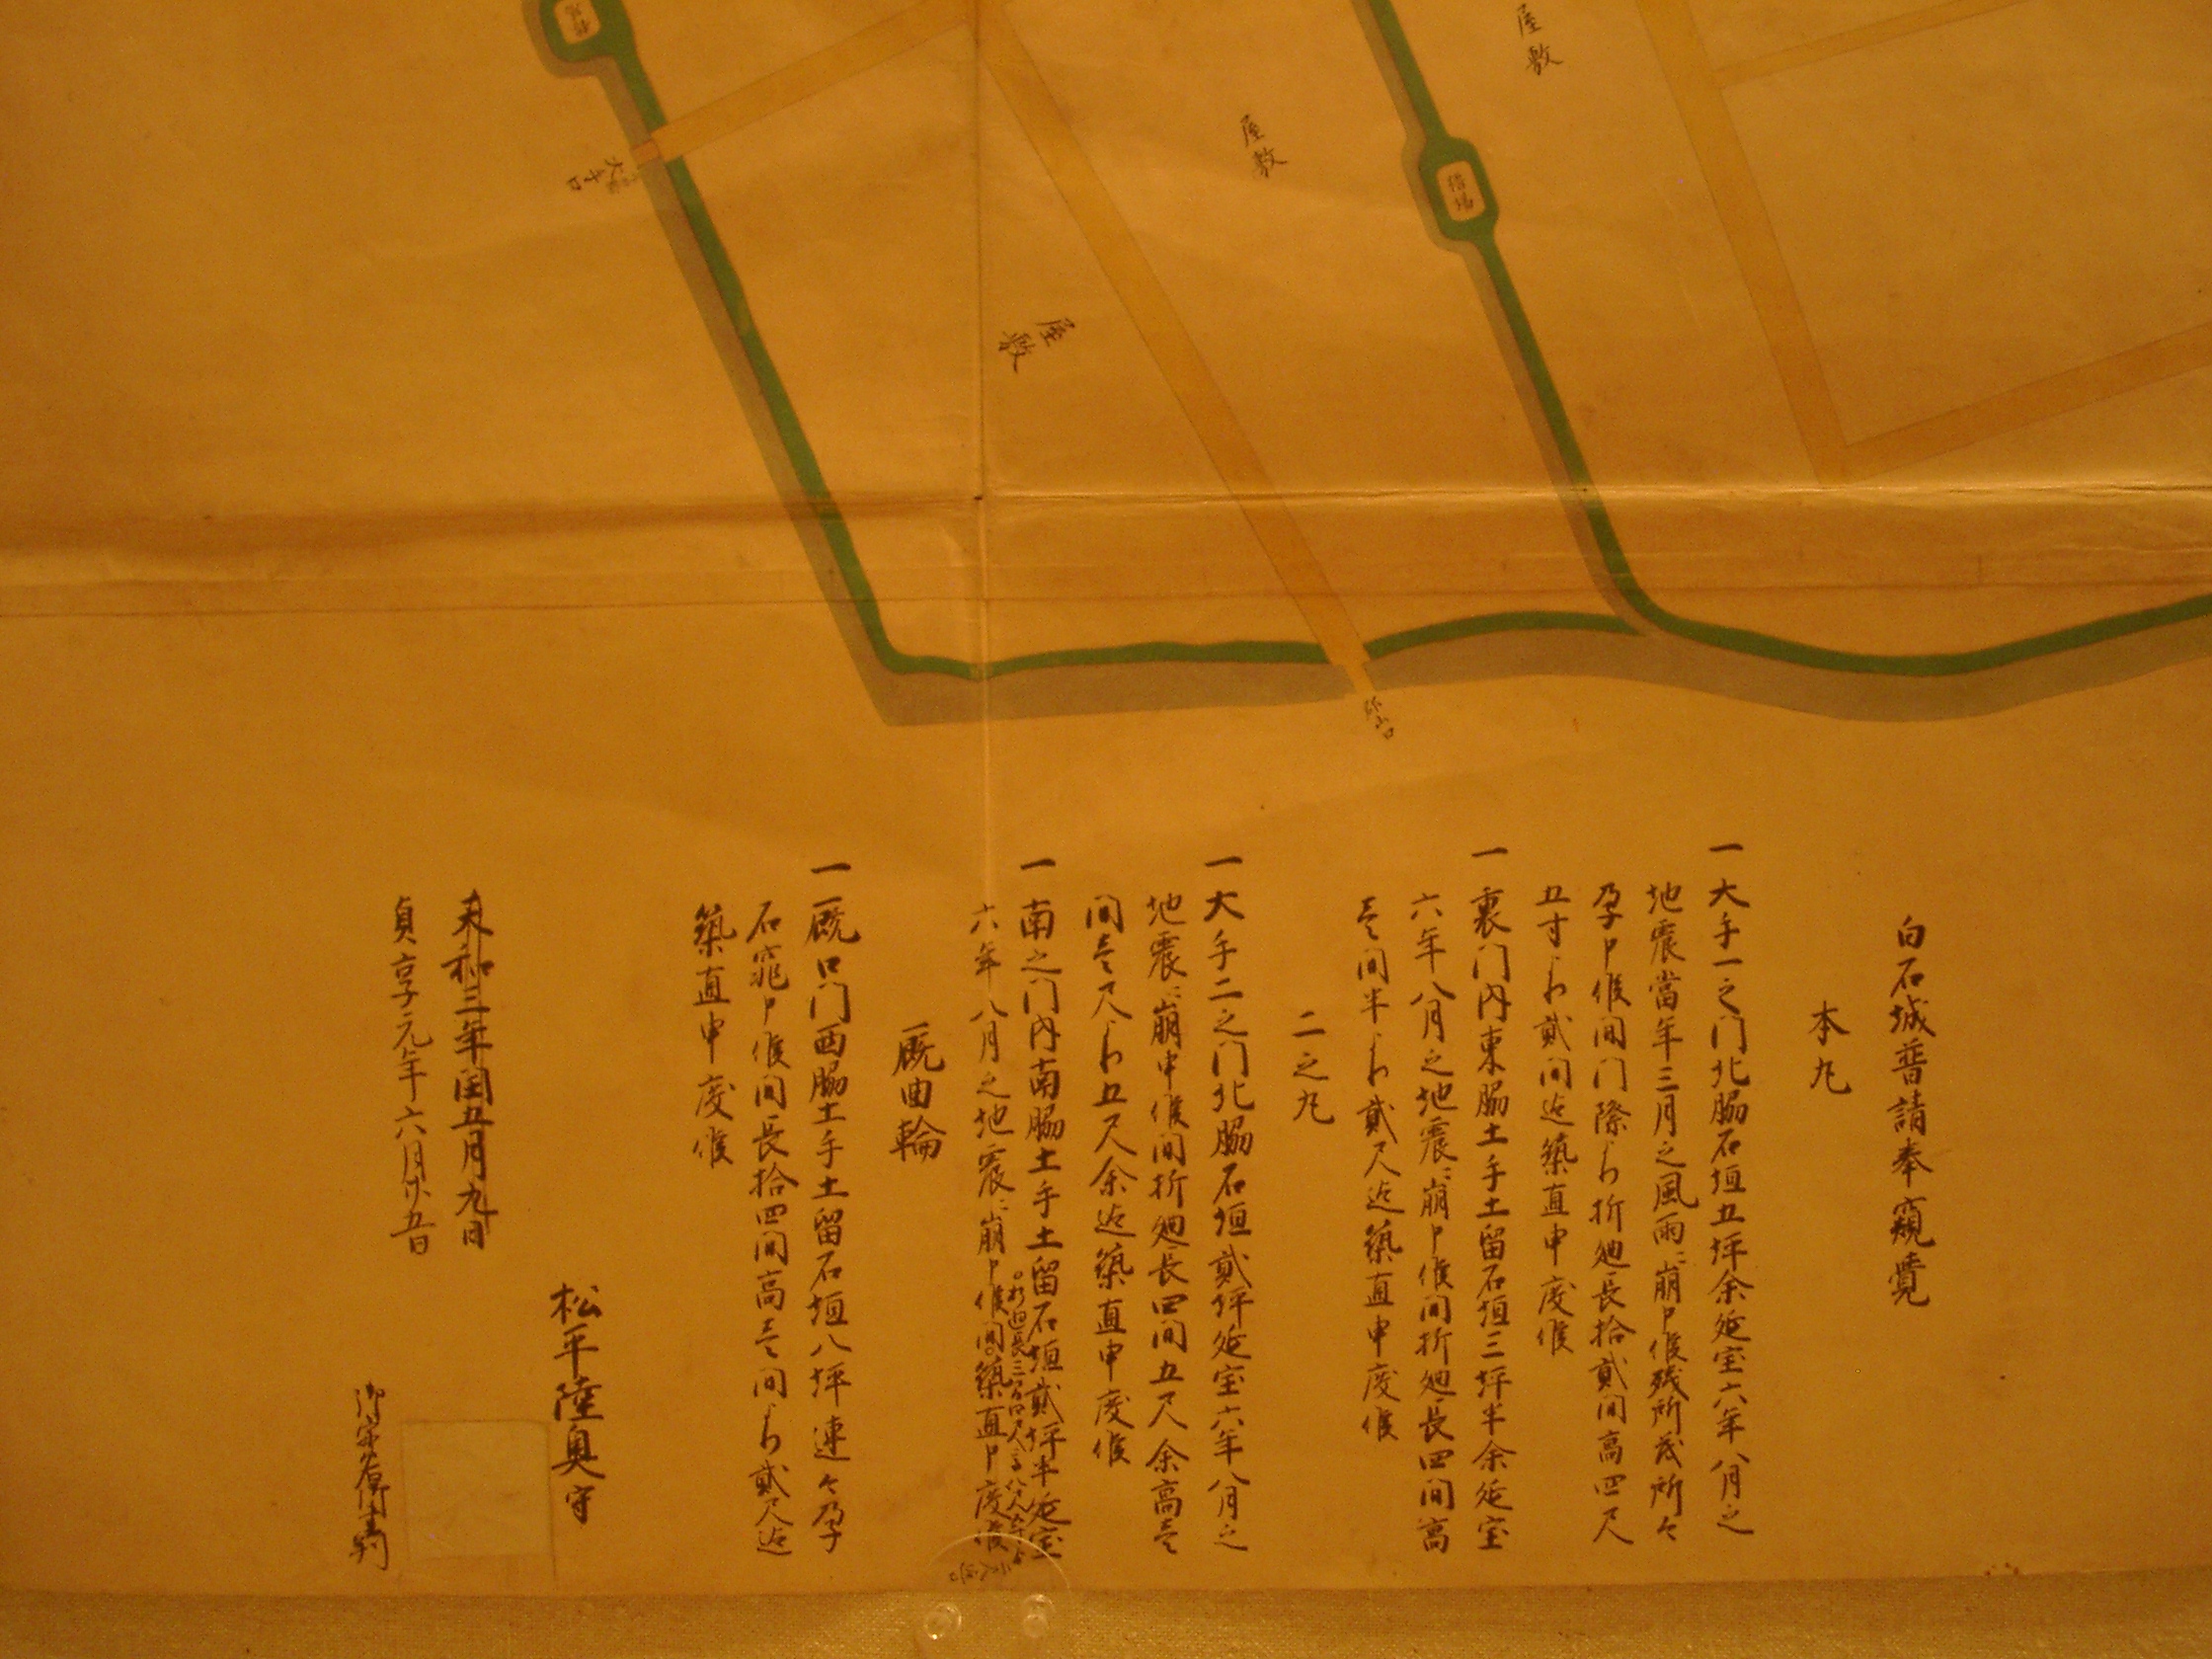 屋敷
屋敷
屋敷
大手口
白石城普請奉窺覺
本丸
一大手一之門北脇石垣五坪余延宝六年八月之
地震當年三月之風雨ニ崩申候残所茂所々
孕申候間門際ゟ折廻長拾貳間高四尺
五寸ゟ貳間迄築直申度候
一裏門内東脇土手土留石垣三坪半余延宝
六年八月之地震ニ崩申候間折廻長四間高
壱間半ゟ貳尺迄築直申度候
二之丸
一大手二之門北脇石垣貳坪延宝六年八月之
地震ニ崩申候間折廻長四間五尺余高壱
間壱尺ゟ五尺余迄築直申度候
一南之門内南脇土手土留石垣貳坪半延宝
六年八月之地震ニ崩申候間築直申度候
厩曲輪
一厩口門西脇土手土留石垣八坪連々孕
石窕申候間長拾四間高壱間ゟ貳尺迄
築直申度候
松平陸奥守
天和三年閏五月九日
貞享元年六月廿五日